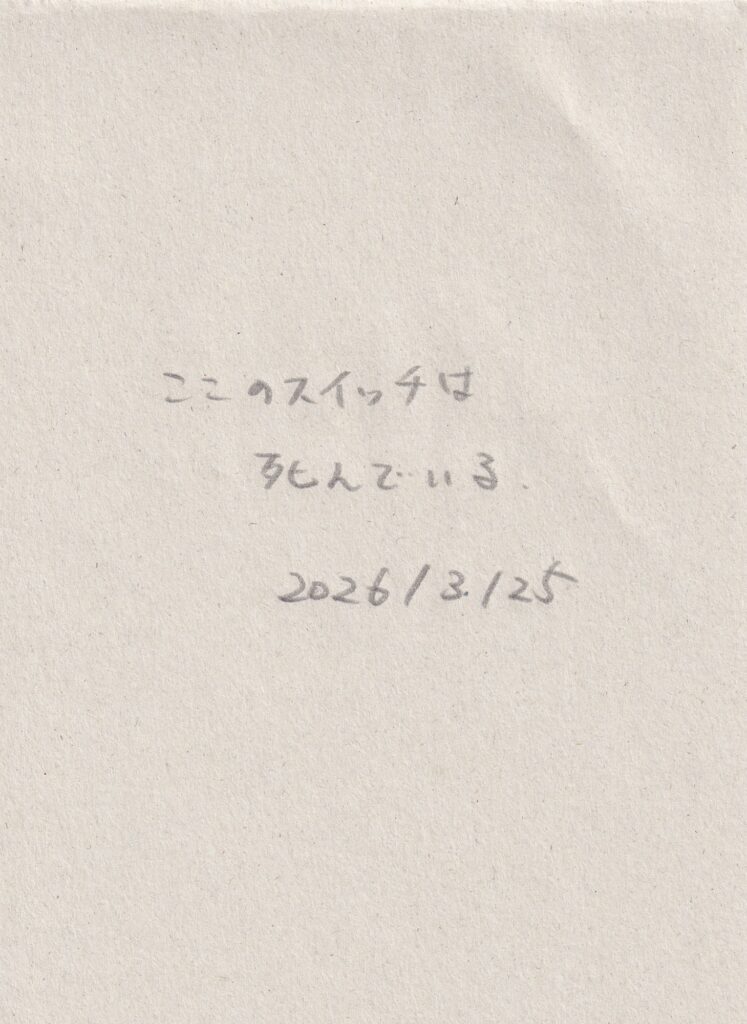 ここのスイッチは
死んでいる.
2026/3/25